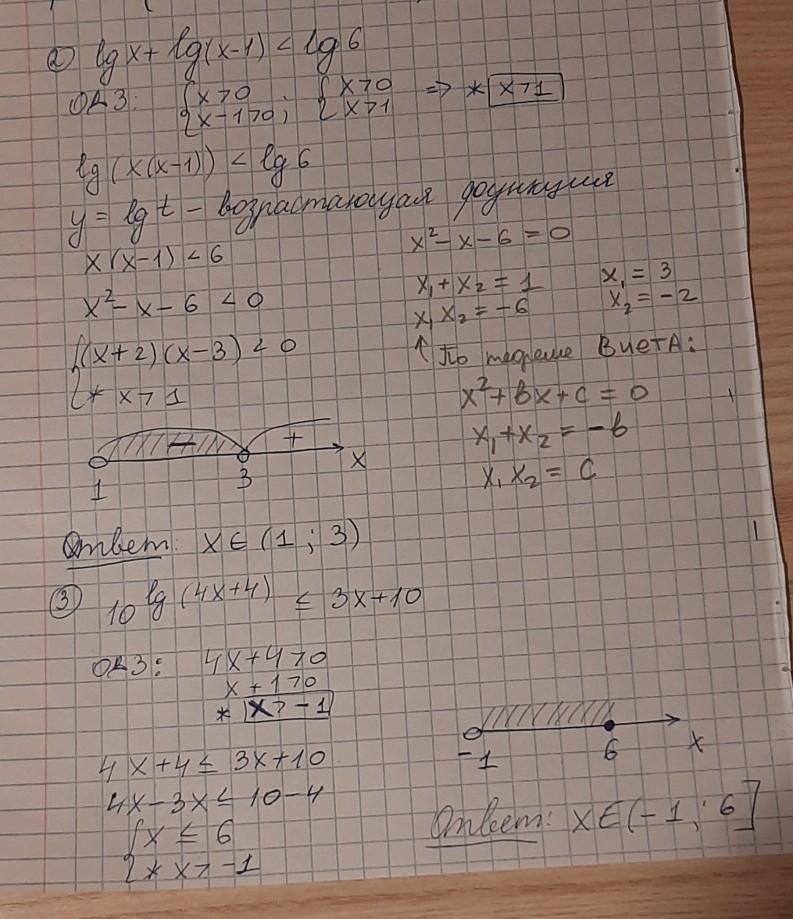 ② lg x + lg(x-1) < lg 6
ОДЗ: { x>0 x-1>0 ; { x>0 x>1 => * x>1
lg(x(x-1)) < lg 6
y = lg t - возрастающая функция
x(x-1) < 6
x² - x - 6 < 0
{ (x+2)(x-3) < 0
* x > 1
- +
1 3 x
x² - x - 6 = 0
x₁ + x₂ = 1 x₁ = 3
x₁ x₂ = -6 x₂ = -2
↑ По теореме Виета:
x² + bx + c = 0
x₁ + x₂ = -b
x₁ x₂ = c
Ответ: x ∈ (1 ; 3)
③ 10^lg(4x+4) ≤ 3x+10
ОДЗ: 4x+4>0
x+1>0
* x>-1
4x+4 ≤ 3x+10
4x-3x ≤ 10-4
{ x ≤ 6
* x > -1
-1 6 x
Ответ: x ∈ (-1 ; 6]